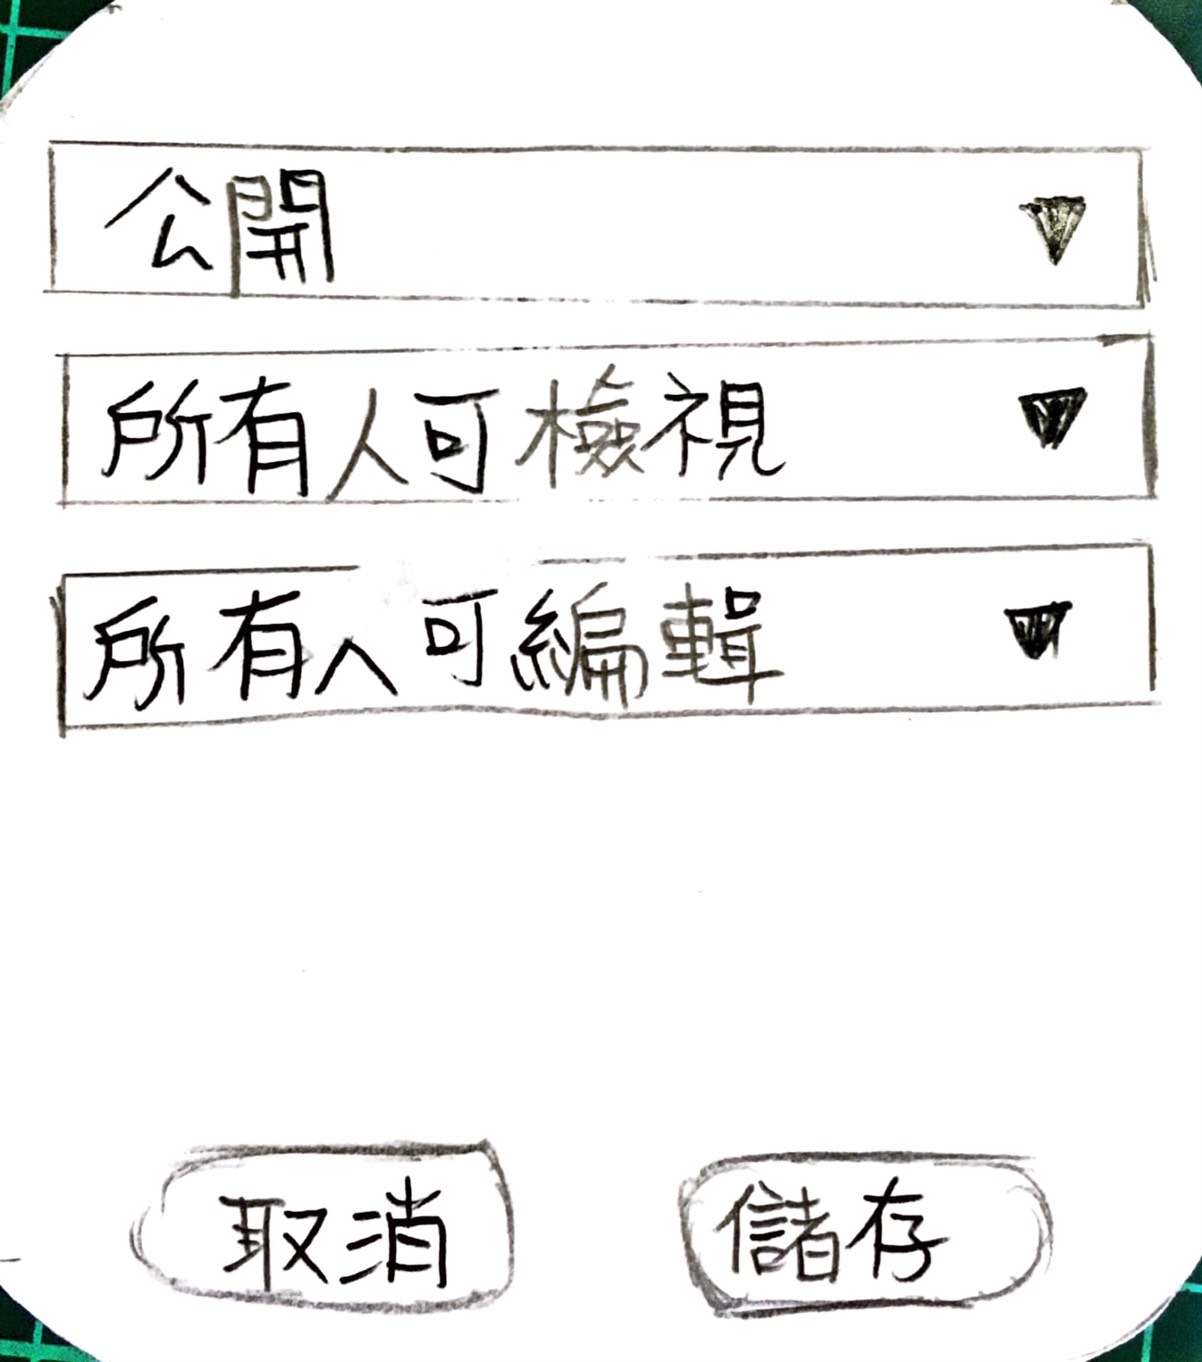 公開
所有人可檢視
所有人可編輯
取消
儲存